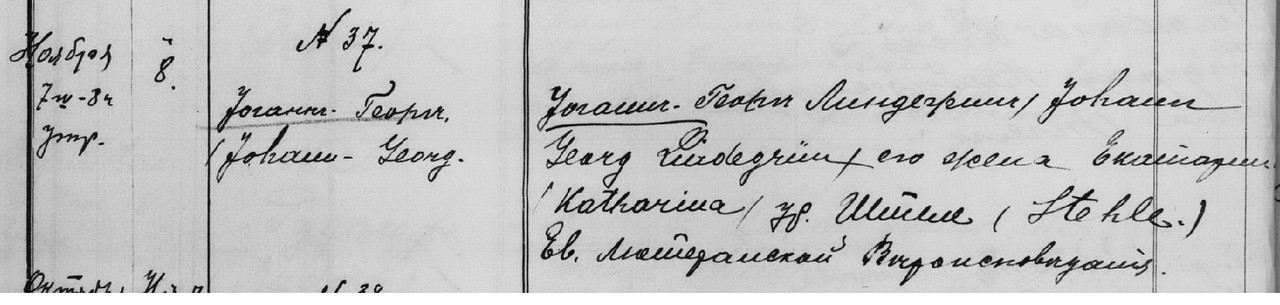 № 37.
Ноября 8.
7го-8ч
утр.
Іоганнъ-Георгъ.
(Johann-Georg.
Іоганнъ-Георгъ Линдегринъ / Johann
Georg Lindegrün / его жена Екатарин
/ Katharina / ур. Штеле ( Stehle.)
Ев. Лютеранской Вѣроисповѣданія.
Октябр.
№ 38